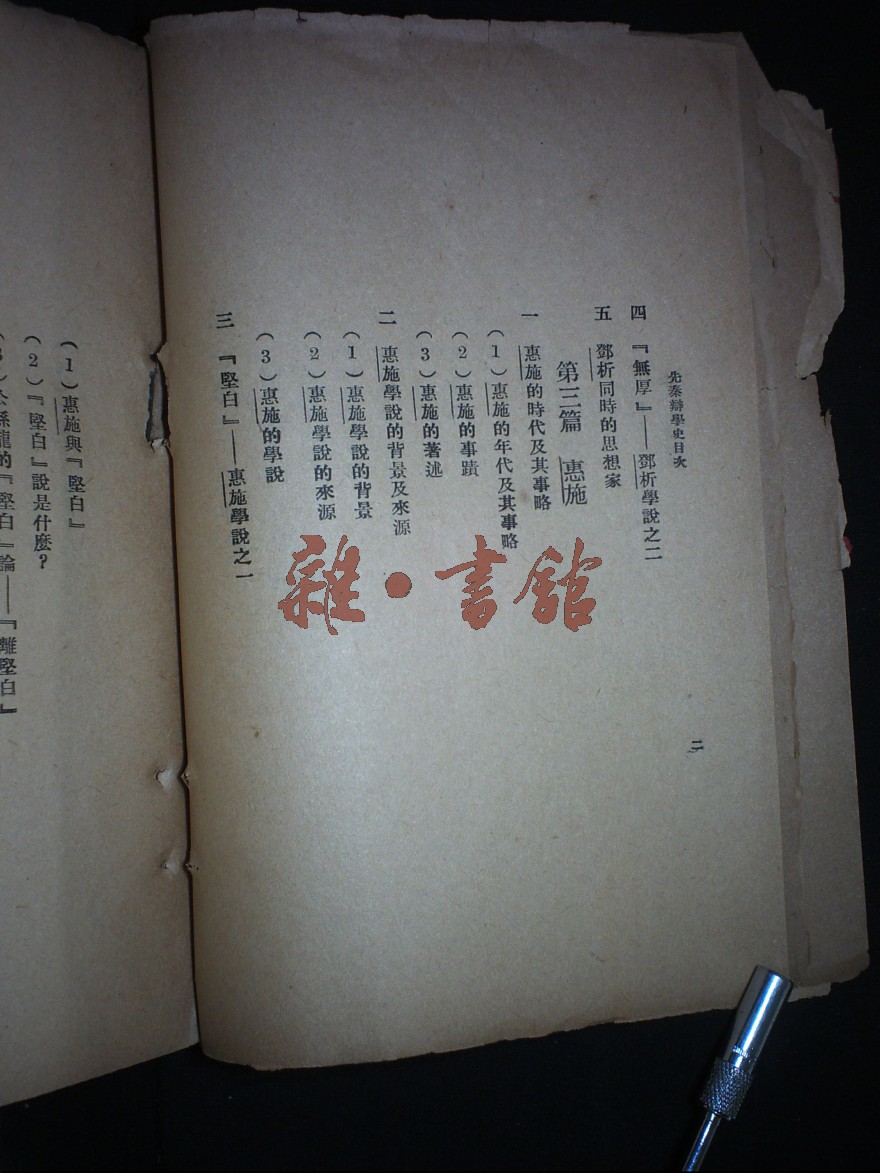 先秦辯學史目次
四 『無厚』——鄧析學說之二
五 鄧析同時的思想家
第三篇 惠施
一 惠施的時代及其事略
(1)惠施的年代及其事略
(2)惠施的事蹟
(3)惠施的著述
二 惠施學說的背景及來源
(1)惠施學說的背景
(2)惠施學說的來源
(3)惠施的學說
三 『堅白』——惠施學說之一
二
(1)惠施與『堅白』
(2)『堅白』說是什麼？
(3)公孫龍的『堅白』論——『離堅白』
雜·書館